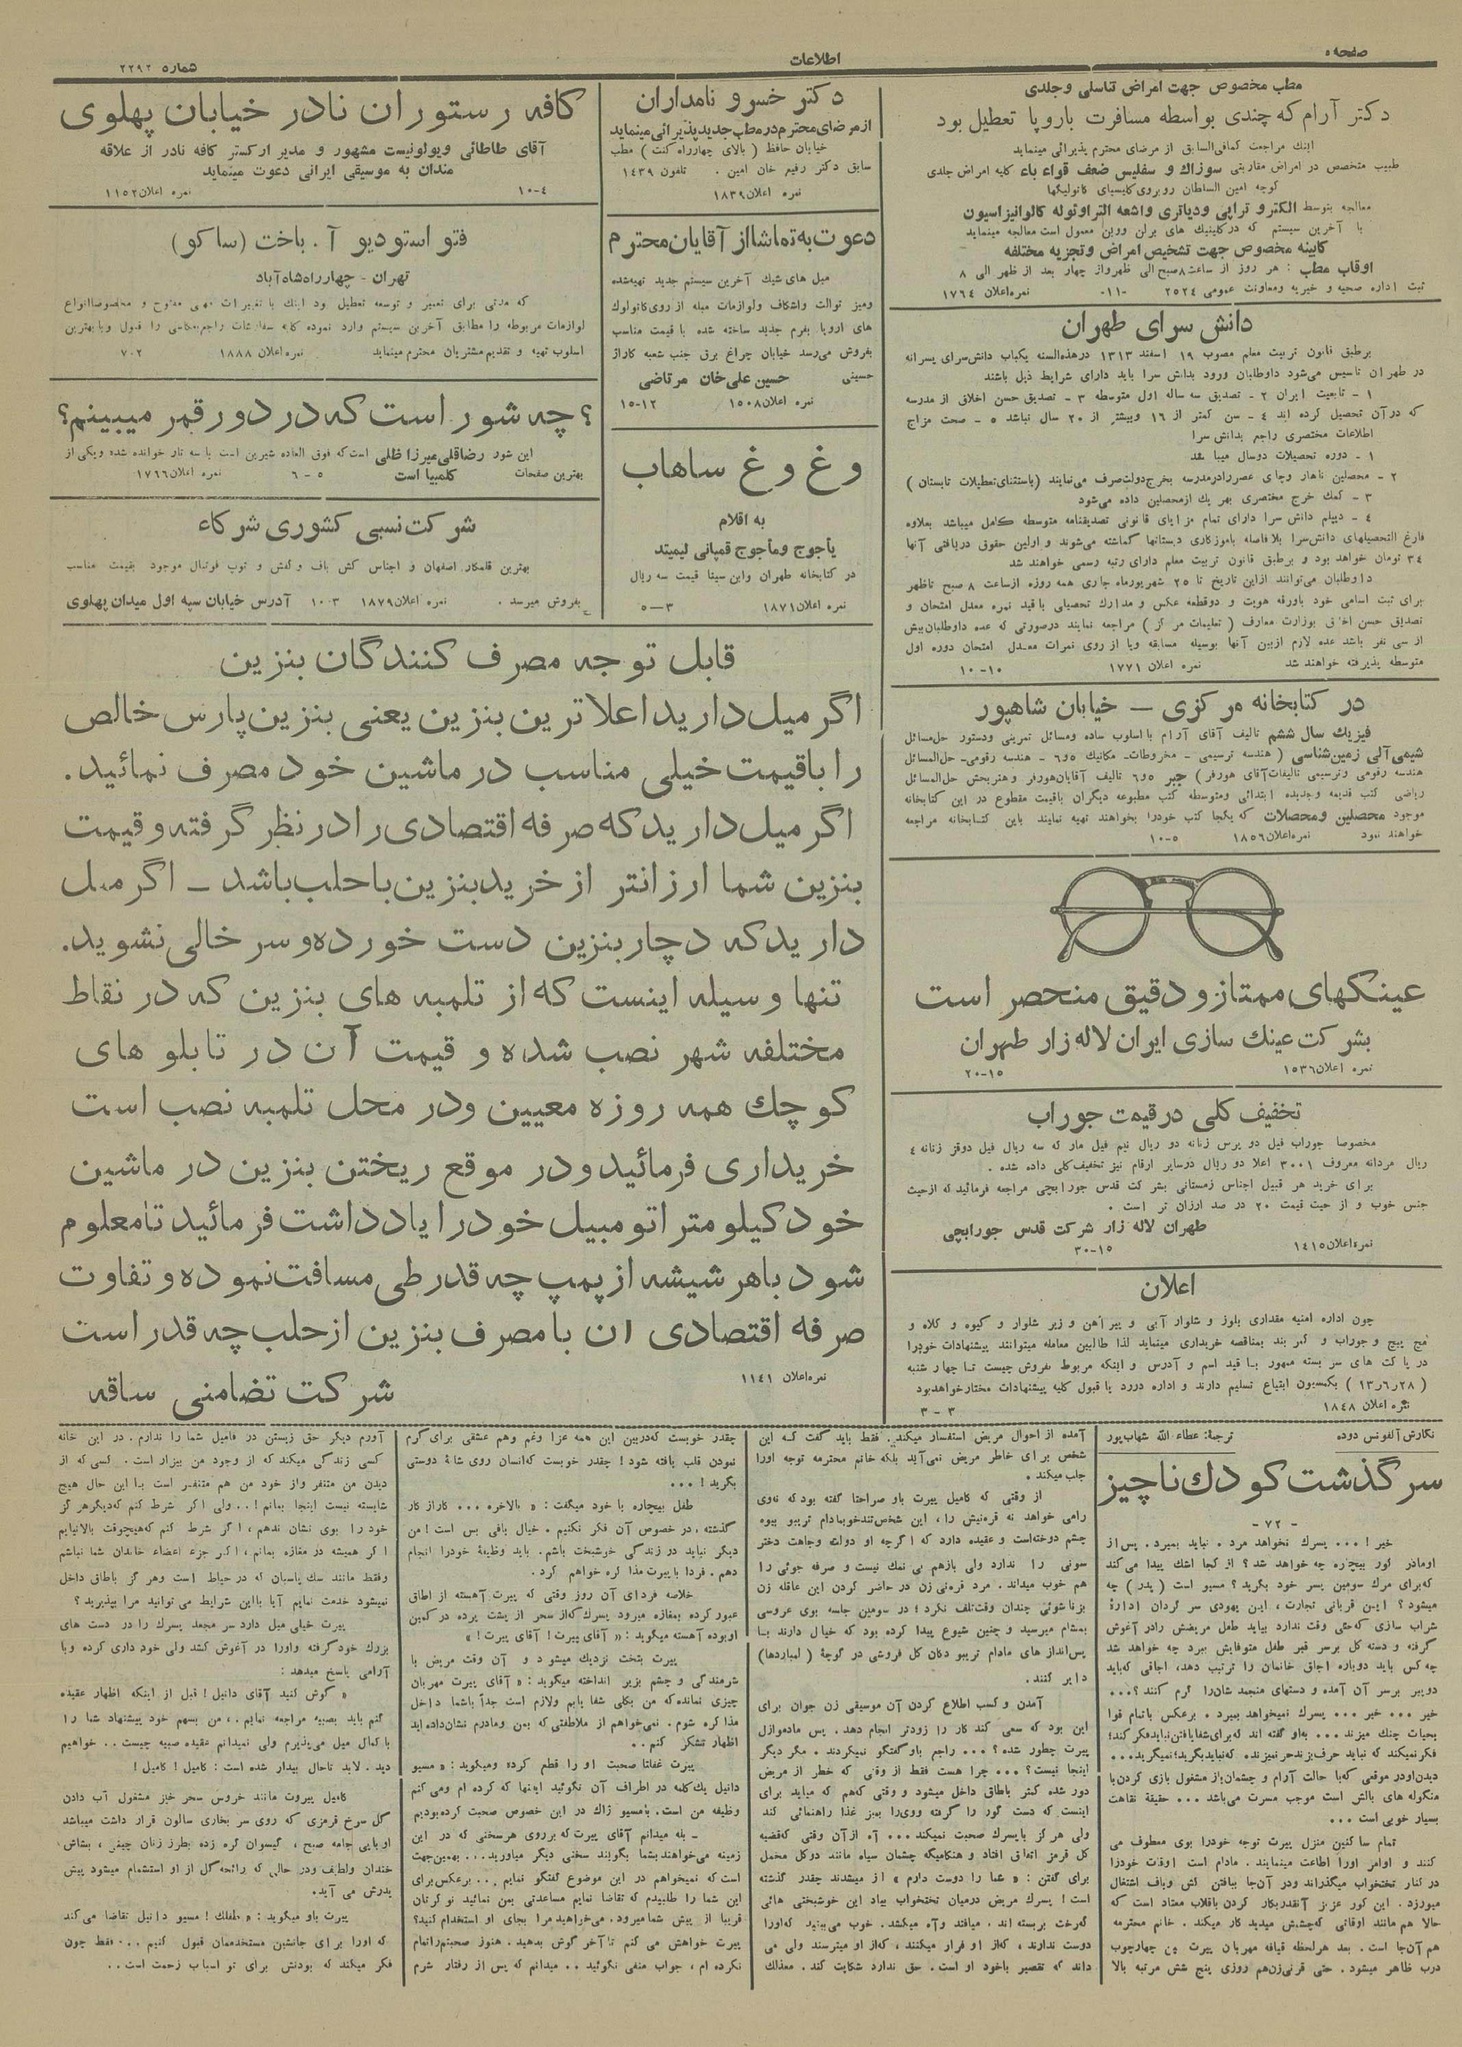 صفحه ۵
اطلاعات
شماره ۲۲۹۲
مطب مخصوص جهت امراض تناسلی و جلدی
دکتر آرام که چندی بواسطه مسافرت باروپا تعطیل بود
اینك مراجعت کمافی‌السابق از مرضای محترم پذیرائی مینماید
طبیب متخصص در امراض مقاربتی سوزاك و سفلیس ضعف قواء باء کلیه امراض جلدی
کوچه امین السلطان روبروی کلیسیای کاتولیکها
معالجه بتوسط الکترو تراپی ودیاتری واشعه التراوئوله کالوانیزاسیون
با آخرین سیستم که در کلینیك های برلن ووین معمول است معالجه مینماید
کابینه مخصوص جهت تشخیص امراض و تجزیه مختلفه
اوقات مطب : هر روز از ساعت ۸ صبح الی ظهر واز چهار بعد از ظهر الی ۸
ثبت اداره صحیه و خیریه ومعاونت عمومی ۲۵۲۴ -۱۱۰ نمره اعلان ۱۷۶۴
دانش سرای طهران
برطبق قانون تربیت معلم مصوب ۱۹ اسفند ۱۳۱۳ در هذه‌السنه یکباب دانش‌سرای پسرانه
در طهران تاسیس می‌شود داوطلبان ورود بدانش سرا باید دارای شرایط ذیل باشند
۱ - تابعیت ایران ۲ - تصدیق سه ساله اول متوسطه ۳ - تصدیق حسن اخلاق از مدرسه
که در آن تحصیل کرده اند ۴ - سن کمتر از ۱۶ وبیشتر از ۲۰ سال نباشد ۵ - صحت مزاج
اطلاعات مختصری راجع بدانش سرا
۱ - دوره تحصیلات دوسال میباشد
۲ - محصلین ناهار وچای عصررادرمدرسه بخرج دولت صرف می‌نمایند (باستثنای تعطیلات تابستان)
۳ - کمك خرج مختصری بهر یك از محصلین داده می‌شود
۴ - دیپلم دانش سرا دارای تمام مزایای قانونی تصدیقنامه متوسطه کامل میباشد بعلاوه
فارغ التحصیلهای دانش‌سرا بلافاصله باموزکاری دبستانها گماشته می‌شوند و اولین حقوق دریافتی آنها
۳۴ تومان خواهد بود و برطبق قانون تربیت معلم دارای رتبه رسمی خواهند شد
داوطلبان می‌توانند ازاین تاریخ تا ۲۵ شهریورماه جاری همه روزه ازساعت ۸ صبح تاظهر
برای ثبت اسامی خود باورقه هویت و دوقطعه عکس و مدارك تحصیلی باقید نمره معدل امتحان و
تصدیق حسن اخلاق بوزارت معارف ( تعلیمات مرکز ) مراجعه نمایند درصورتی که عده داوطلبان بیش
از سی نفر باشد عده لازم ازبین آنها بوسیله مسابقه ویا از روی نمرات معدل امتحان دوره اول
متوسطه پذیرفته خواهند شد نمره اعلان ۱۷۷۱ ۱۰-۱۰
در کتابخانه مرکزی — خیابان شاهپور
فیزیك سال ششم تالیف آقای آرام با اسلوب ساده ومسائل تمرینی ودستور حل‌مسائل
شیمی آلی زمین‌شناسی ( هندسه ترسیمی - مخروطات- مکانیك ۵و۶ - هندسه رقومی- حل‌المسائل
هندسه رقومی وترسیمی تالیفات‌آقای هورفر) جبر ۵و۶ تالیف آقایان‌هورفر وهنربخش حل‌المسائل
ریاضی کتب قدیمه وجدیده ابتدائی ومتوسطه کتب مطبوعه دیگران باقیمت مقطوع در این کتابخانه
موجود محصلین ومحصلات که یکجا کتب خودرا بخواهند تهیه نمایند باین کتابخانه مراجعه
خواهند نمود نمره اعلان ۱۸۵۶ ۵-۱۰
عینکهای ممتاز و دقیق منحصر است
بشرکت عینك سازی ایران لاله زار طهران
نمره اعلان ۱۵۳۶ ۱۵-۲۰
تخفیف کلی در قیمت جوراب
مخصوصا جوراب فیل دو پرس زنانه دو ریال نیم فیل مار که سه ریال فیل دوقز زنانه ۴
ریال مردانه معروف ۳۰۰۱ اعلا دو ریال درسایر ارقام نیز تخفیف‌کلی داده شده .
برای خرید هر قبیل اجناس زمستانی بشرکت قدس جورابچی مراجعه فرمائید که ازحیث
جنس خوب و از حیث قیمت ۲۰ در صد ارزان تر است .
طهران لاله زار شرکت قدس جورابچی
نمره اعلان ۱۴۱۵ ۱۵-۳۰
اعلان
چون اداره امنیه مقداری بلوز و شلوار آبی و پیراهن و زیر شلوار و گیوه و کلاه و
مچ پیچ و جوراب و کمر بند بمناقصه خریداری مینماید لذا طالبین معامله میتوانند پیشنهادات خودرا
در پاکت های سر بسته ممهور با قید اسم و آدرس و اینکه مربوط بفروش چیست تا چهار شنبه
( ۱۳ر۶ر۲۸ ) بکمسیون ابتیاع تسلیم دارند و اداره دررد یا قبول کلیه پیشنهادات مختار خواهد بود
نمره اعلان ۱۸۴۸ ۳ - ۳
دکتر خسرو نامداران
از مرضای محترم در مطب جدید پذیرائی مینماید
خیابان حافظ ( بالای چهارراه کنت ) مطب
سابق دکتر رفیع خان امین . تلفون ۱۴۳۹
نمره اعلان ۱۸۳۹
دعوت به تماشا از آقایان محترم
مبل های شیك آخرین سیستم جدید تهیه‌شده
ومیز توالت واشکاف ولوازمات مبله از روی کاتولوك
های اروپا بفرم جدید ساخته شده با قیمت مناسب
بفروش می‌رسد خیابان چراغ برق جنب شعبه کاراژ
حسینی حسین علی خان مرتاضی
نمره اعلان ۱۵۰۸ ۱۲-۱۵
وغ وغ ساهاب
به اقلام
یأجوج ومأجوج قمپانی لیمیتد
در کتابخانه طهران وابن سینا قیمت سه ریال
نمره اعلان ۱۸۷۱ ۳—۵
کافه رستوران نادر خیابان پهلوی
آقای طاطائی ویولونیست مشهور و مدیر ارکستر کافه نادر از علاقه
مندان به موسیقی ایرانی دعوت مینماید
۴-۱۰ نمره اعلان ۱۱۵۲
فتو استودیو آ . باخت (ساکو)
تهران - چهارراه شاه‌آباد
که مدتی برای تعمیر و توسعه تعطیل بود اینك با تغییرات مهمی مفتوح و مخصوصاانواع
لوازمات مربوطه را مطابق آخرین سیستم وارد نموده کلیه سفارشات راجع‌بعکاسی را قبول وبابهترین
اسلوب تهیه و تقدیم مشتریان محترم مینماید نمره اعلان ۱۸۸۸ ۲-۷
؟ چه شور است که در دور قمر میبینم ؟
این شور رضاقلی میرزا ظلی است که فوق العاده شیرین است با سه تار خوانده شده ویکی از
بهترین صفحات کلمبیا است ۵ - ۶ نمره اعلان ۱۷۶۶
شرکت نسبی کشوری شرکاء
بهترین قلمکار اصفهان و اجناس کش باف و کفش و توپ فوتبال موجود بقیمت مناسب
بفروش میرسد . نمره اعلان ۱۸۷۹ ۳-۱۰ آدرس خیابان سپه اول میدان پهلوی
قابل توجه مصرف کنندگان بنزین
اگر میل دارید اعلا ترین بنزین یعنی بنزین پارس خالص
را باقیمت خیلی مناسب در ماشین خود مصرف نمائید.
اگر میل دارید که صرفه اقتصادی را در نظر گرفته و قیمت
بنزین شما ارزانتر از خرید بنزین با حلب باشد – اگر میل
دارید که دچار بنزین دست خورده و سر خالی نشوید.
تنها وسیله اینست که از تلمبه های بنزین که در نقاط
مختلفه شهر نصب شده و قیمت آن در تابلو های
کوچك همه روزه معیین ودر محل تلمبه نصب است
خریداری فرمائید و در موقع ریختن بنزین در ماشین
خود کیلومتر اتومبیل خود را یادداشت فرمائید تا معلوم
شود با هر شیشه از پمپ چه قدر طی مسافت نموده و تفاوت
صرفه اقتصادی آن با مصرف بنزین از حلب چه قدر است
نمره اعلان ۱۱۴۱
شرکت تضامنی ساقه
نگارش آلفونس دوده
ترجمهٔ: عطاء الله شهاب‌پور
سرگذشت کودك ناچیز
- ۷۲ -
خیر !... پسرك نخواهد مرد . نباید بمیرد . پس‌از
اومادر کور بیچاره چه خواهد شد؟ از کجا اشك پیدا می‌کند
که‌برای مرك سومین پسر خود بگرید؟ مسیو است (پدر) چه
میشود؟ این قربانی تجارت، این یهودی سر گردان ادارهٔ
شراب سازی که‌حتی وقت ندارد بیاید طفل مریضش رادر آغوش
گرفته و دسته گل برسر قبر طفل متوفایش ببرد چه خواهد شد
چه کس باید دوباره اجاق خانمان را ترتیب دهد، اجاقی که‌باید
دوپیر برسر آن آمده و دستهای منجمد شان‌را گرم کنند؟...
خیر ... خیر ... پسرك نمیخواهد بمیرد . برعکس باتمام قوا
بحیات چنك میزند ... به‌او گفته اند که‌برای شفا یافتن نباید فکر کند؛
فکر نمیکند که نباید حرف بزند حرف نمیزند. که نباید بگرید؛ نمیگرید...
دیدن‌او در موقعی که‌با حالت آرام و چشمان‌باز مشغول بازی کردن با
منگوله های بالش است موجب مسرت می‌باشد ... حقیقة نقاهت
بسیار خوبی است ...
تمام ساکنین منزل پیرت توجه خودرا بوی معطوف می
کنند و اوامر اورا اطاعت مینمایند . مادام است اوقات خودرا
در کنار تختخواب میگذراند ودر آن‌جا ببافتن کش وباف اشتغال
میورزد . این کور عزیز آنقدر بکار کردن باقلاب معتاد است که
حالا هم مانند اوقاتی که‌چشمش میدید کار میکند . خانم محترمه
هم آن‌جا است. بعد هرلحظه قیافه مهربان پیرت بین چهارچوب
درب ظاهر میشود . حتی قره‌نی‌زن‌هم روزی پنج شش مرتبه بالا
آمده از احوال مریض استفسار میکند. فقط باید گفت که این
شخص برای خاطر مریض نمی‌آید بلکه خانم محترمه توجه اورا
جلب میکند .
از وقتی که کامیل پیرت باو صراحتا گفته بود که نه‌وی
رامی خواهد نه قره‌نیش را، این شخص تندخو بمادام تریبو بیوه
چشم دوخته‌است و عقیده دارد که اگرچه او دولت وجاهت دختر
سونی را ندارد ولی بازهم بی نمك نیست و صرفه جوئی را
هم خوب میداند . مرد قره‌نی زن در حاضر کردن این عاقله زن
بزناشوئی چندان وقت‌تلف نکرد؛ در سومین جلسه بوی عروسی
بمشام میرسید و چنین شیوع پیدا کرده بود که خیال دارند با
پس‌انداز های مادام تریبو دکان کل فروشی در کوچهٔ (لمباردها)
دایر کنند .
آمدن و کسب اطلاع کردن آن موسیقی زن جوان برای
این بود که سعی کند کار را زودتر انجام دهد. پس مادموازل
پیرت چطور شده؟ ... راجع باو گفتگو نمیکردند . مگر دیگر
اینجا نیست؟ ... چرا هست فقط از وقتی که خطر از مریض
دور شده کمتر باطاق داخل میشود و وقتی که‌هم که میاید برای
اینست که دست کور را گرفته ووی‌را بمیز غذا راهنمائی کند
ولی هرگز باپسرك صحبت نمیکند... آه از آن وقتی که‌قضیه
کل قرمز اتفاق افتاد و هنگامیکه چشمان سیاه مانند دوکل مخمل
برای گفتن : « شما را دوست دارم » از میشدند چقدر گذشته
است ! پسرك مریض درمیان تختخواب بیاد این خوشبختی هائی
که‌رخت بربسته اند . میافتد وآه میکشد. خوب می‌بیند که‌اورا
دوست ندارند، که‌از او فرار میکنند، که‌از او میترسند ولی می
داند که تقصیر باخود او است. حق ندارد شکایت کند. معذلك
چقدر خوبست که‌دربین این همه عزا وغم وهم عشقی برای گرم
نمودن قلب یافته شود! چقدر خوبست که‌انسان روی شانهٔ دوستی
بگرید !...
طفل بیچاره با خود میگفت : « بالاخره ... کار از کار
گذشته. در خصوص آن فکر نکنیم . خیال بافی بس است! من
دیگر نباید در زندگی خوشبخت باشم. باید وظیفهٔ خودرا انجام
دهم. فردا با پیرت مذاکره خواهم کرد.
خلاصه فردای آن روز وقتی که پیرت آهسته از اطاق
عبور کرده بمغازه میرود پسرك که‌از سحر از پشت پرده در کمین
او بوده آهسته میگوید : « آقای پیرت! آقای پیرت! »
پیرت بتخت نزدیك میشود و آن وقت مریض با
شرمندگی و چشم بزیر انداخته میگوید : « آقای پیرت مهربان
چیزی نمانده که من بکلی شفا یابم ولازم است جداً باشما داخل
مذاکره شوم . نمی‌خواهم از ملاطفتی که بمن ومادرم نشان‌داده‌اید
اظهار تشکر کنم ..
پیرت غفلتا صحبت او را قطع کرده ومیگوید : « مسیو
دانیل یك کلمه در اطراف آن نگوئید اینها که کرده ام ومی‌کنم
وظیفه من است. بامسیو ژاك در این خصوص صحبت کرده بودیم
- بله میدانم آقای پیرت که برروی هرسخنی که در این
زمینه می‌خواهند بشما بگویند سخنی دیگر میاورید... بهمین‌جهت
است که نمیخواهم در این موضوع گفتگو نمایم ... برعکس برای
این شما را طلبیدم که تقاضا نمایم مساعدتی بمن نمائید نوکرتان
قریبا از پیش شما میرود. می‌خواهید مرا بجای او استخدام کنید؟
پیرت خواهش می کنم تا آخر گوش بدهید . هنوز صحبتم‌راتمام
نکرده ام، جواب منفی نگوئید .. میدانم که پس از رفتار شرم
آورم دیگر حق زیستن در فامیل شما را ندارم . در این خانه
کسی زندگی میکند که از وجود من بیزار است . کسی که از
دیدن من متنفر واز خود من هم متنفر است با این حال هیچ
شایسته نیست اینجا بمانم!..ولی اگر شرط کنم که‌دیگر هرگز
خود را بوی نشان ندهم، اگر شرط کنم که‌هیچوقت بالانیایم
اگر همیشه در مغازه بمانم، اگر جزء اعضاء خاندان شما نباشم
وفقط مانند سك پاسبان که در حیاط است وهرگز باطاق داخل
نمیشود خدمت نمایم آیا بااین شرایط می توانید مرا بپذیرید؟
پیرت خیلی میل دارد سر مجعد پسرك را در دست های
بزرك خود گرفته واورا در آغوش کشد ولی خود داری کرده وبا
آرامی پاسخ میدهد :
« گوش کنید آقای دانیل! قبل از اینکه اظهار عقیده
کنم باید بصبیه مراجعه نمایم . ، من بسهم خود پیشنهاد شما را
باکمال میل می‌پذیرم ولی نمیدانم عقیده صبیه چیست .. خواهیم
دید . لابد تاحال بیدار شده است : کامیل! کامیل!
کامیل پیروت مانند خروس سحر خیز مشغول آب دادن
گل سرخ قرمزی که روی سر بخاری سالون قرار داشت میباشد
او باپی جامه صبح، گیسوان گره زده بطرز زنان چینی، بشاش
خندان ولطیف ودر حالی که رائحه گل از او استشمام میشود پیش
پدرش می آید.
پیرت باو میگوید : « طفلك! مسیو دانیل تقاضا می‌کند
که اورا برای جانشین مستخدممان قبول کنیم ... فقط چون
فکر میکند که بودنش برای تو اسباب زحمت است ..